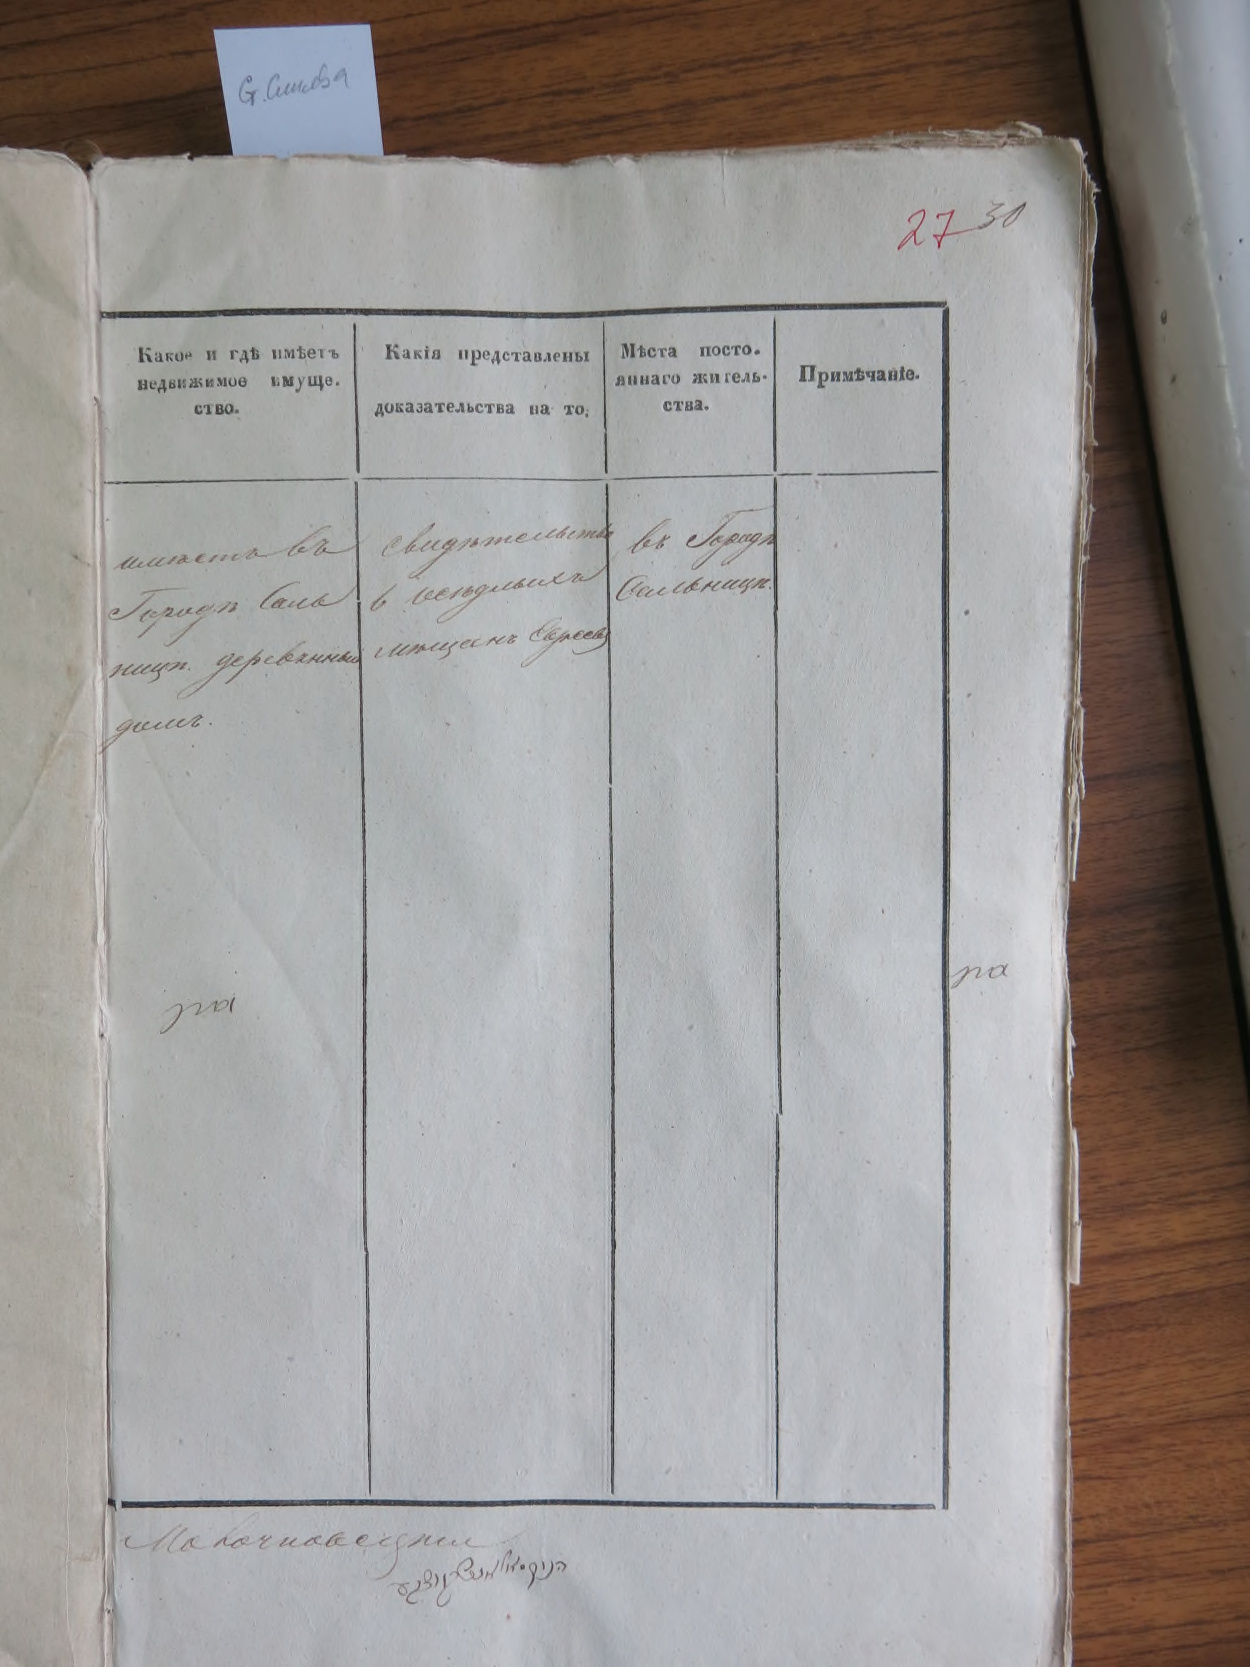 27 30
Какое и гдѣ имѣетъ
недвижимое имуще.
ство.
Какія представлены
доказательства на то.
Мѣста посто.
яннаго жител​ь-
ства.
Примѣчаніе.
имѣетъ въ
Городѣ Саль
ницѣ деревянный
домъ.
свидѣтельство
6 осѣдлыхъ
мѣщанъ Евреевъ
въ Городѣ
Сальницѣ.
ра
ра